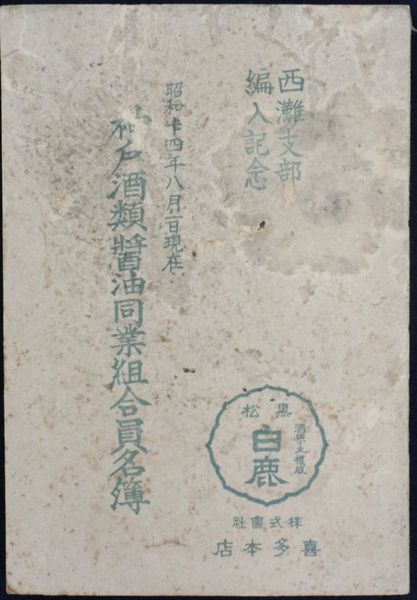 西灘支部
編入記念
昭和十四年八月一日現在
神戸酒類醤油同業組合員名簿
黒松
白鹿
株式會社
喜多本店